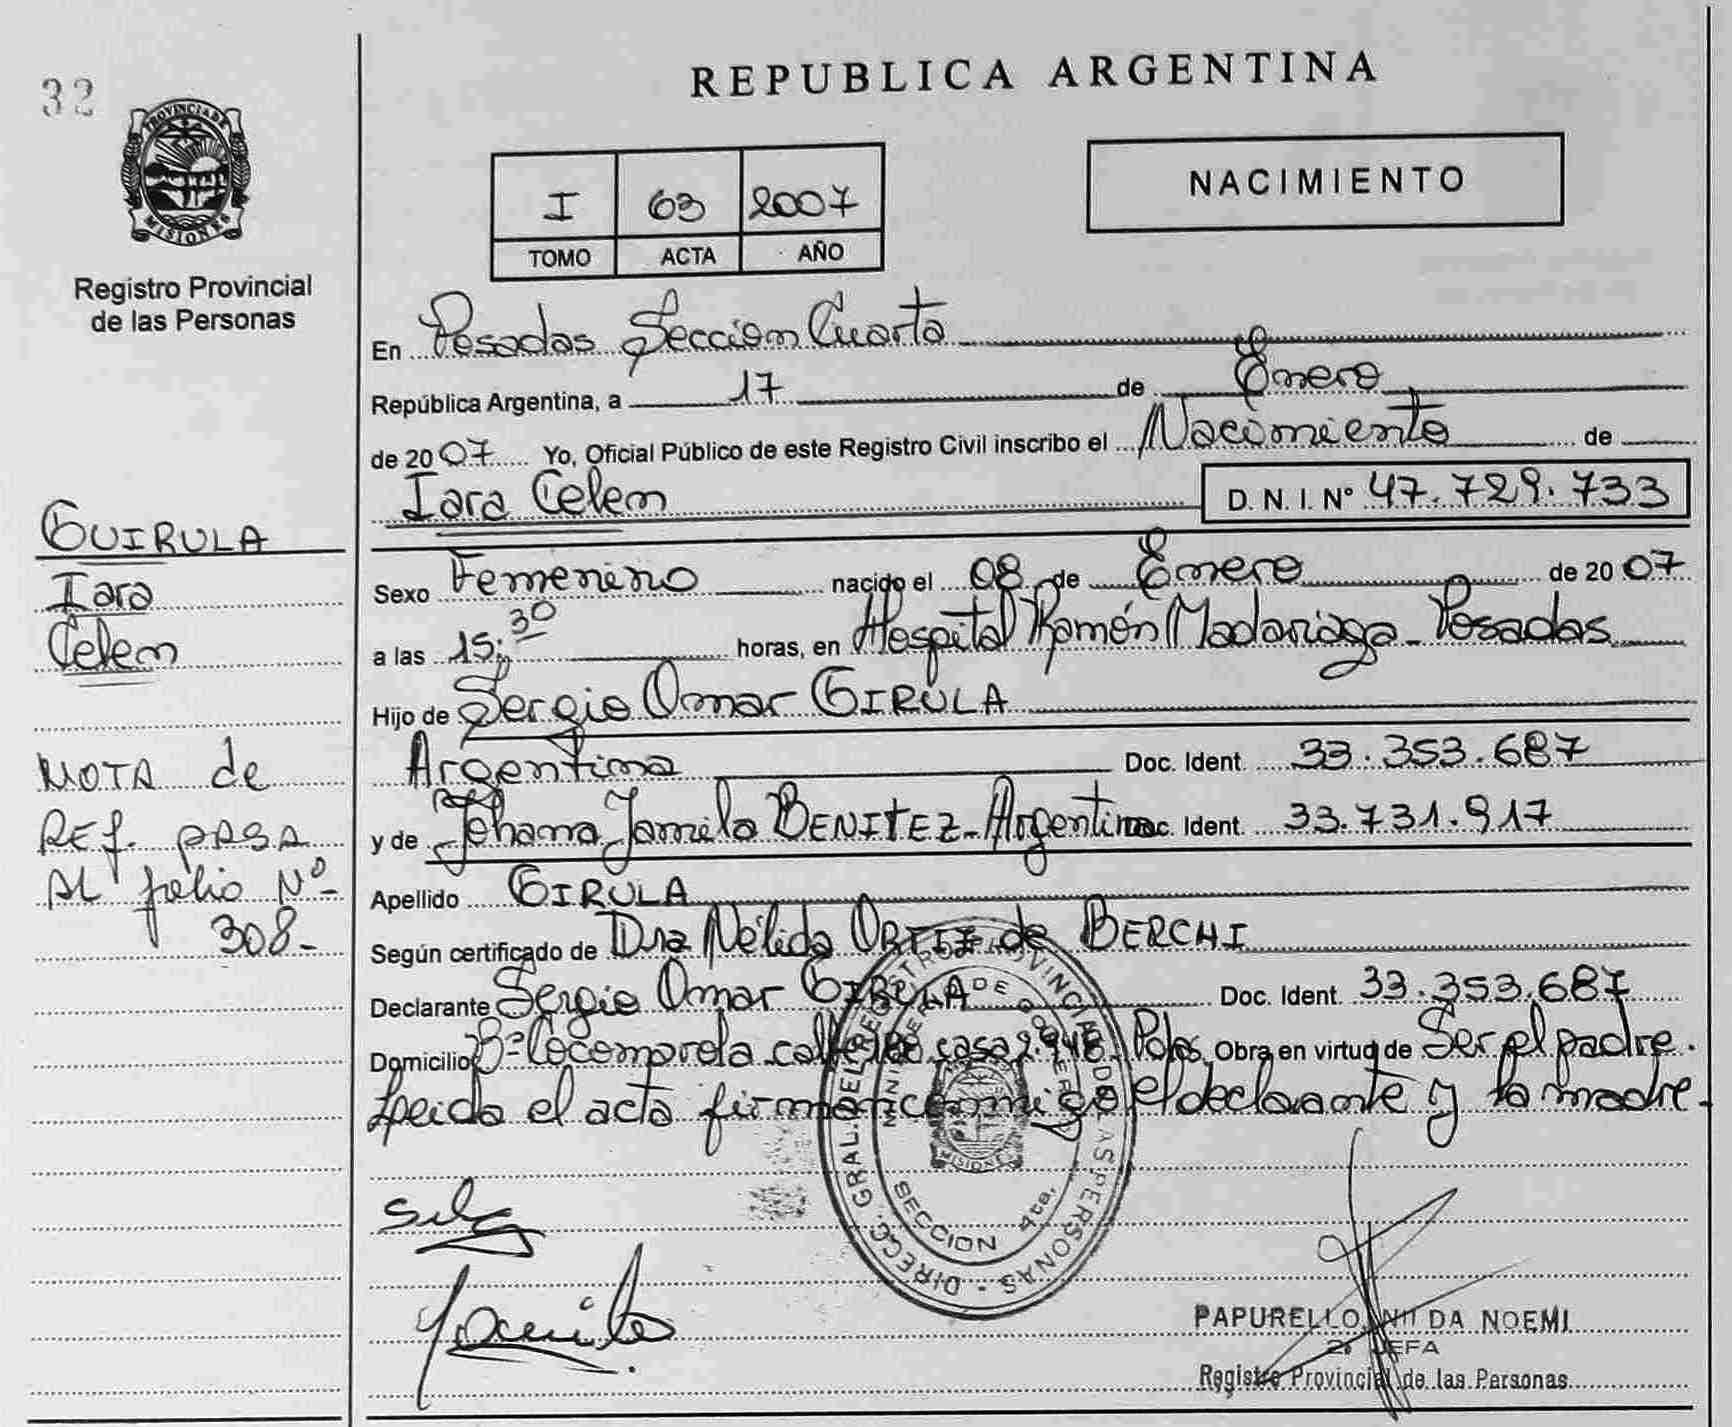 32
REPUBLICA ARGENTINA
PROVINCIA DE
MISIONES
Registro Provincial
de las Personas
I 63 2007
TOMO ACTA AÑO
NACIMIENTO
En Posadas Sección Cuarta
República Argentina, a 17 de Enero
de 2007 Yo, Oficial Público de este Registro Civil inscribo el Nacimiento de
Iara Celem D.N.I. Nº 47.729.733
GUIRULA
Iara
Celem
Sexo Femenino nacido el 08 de Enero de 2007
a las 15:30 horas, en Hospital Ramón Madariaga - Posadas
Hijo de Sergio Omar GIRULA
Argentina Doc. Ident. 33.353.687
y de Johana Jamila BENITEZ - Argentina Doc. Ident. 33.731.917
NOTA de
REF. PASA
AL folio Nº-
308-
Apellido GIRULA
Según certificado de Dra Nélida ORTIZ de BERCHI
Declarante Sergio Omar GIRULA Doc. Ident. 33.353.687
Domicilio Bº Cocomarola calle casa 2.948 Pdas Obra en virtud de Ser el padre.
Leida el acta firman conmigo el declarante y la madre.
DIRECC. GRAL. DEL REGISTRO PROVINCIAL DE LAS PERSONAS
MINISTERIO DE GOBIERNO
MISIONES
SECCION 4ta.
PAPURELLO, NILDA NOEMI
2º JEFA
Registro Provincial de las Personas